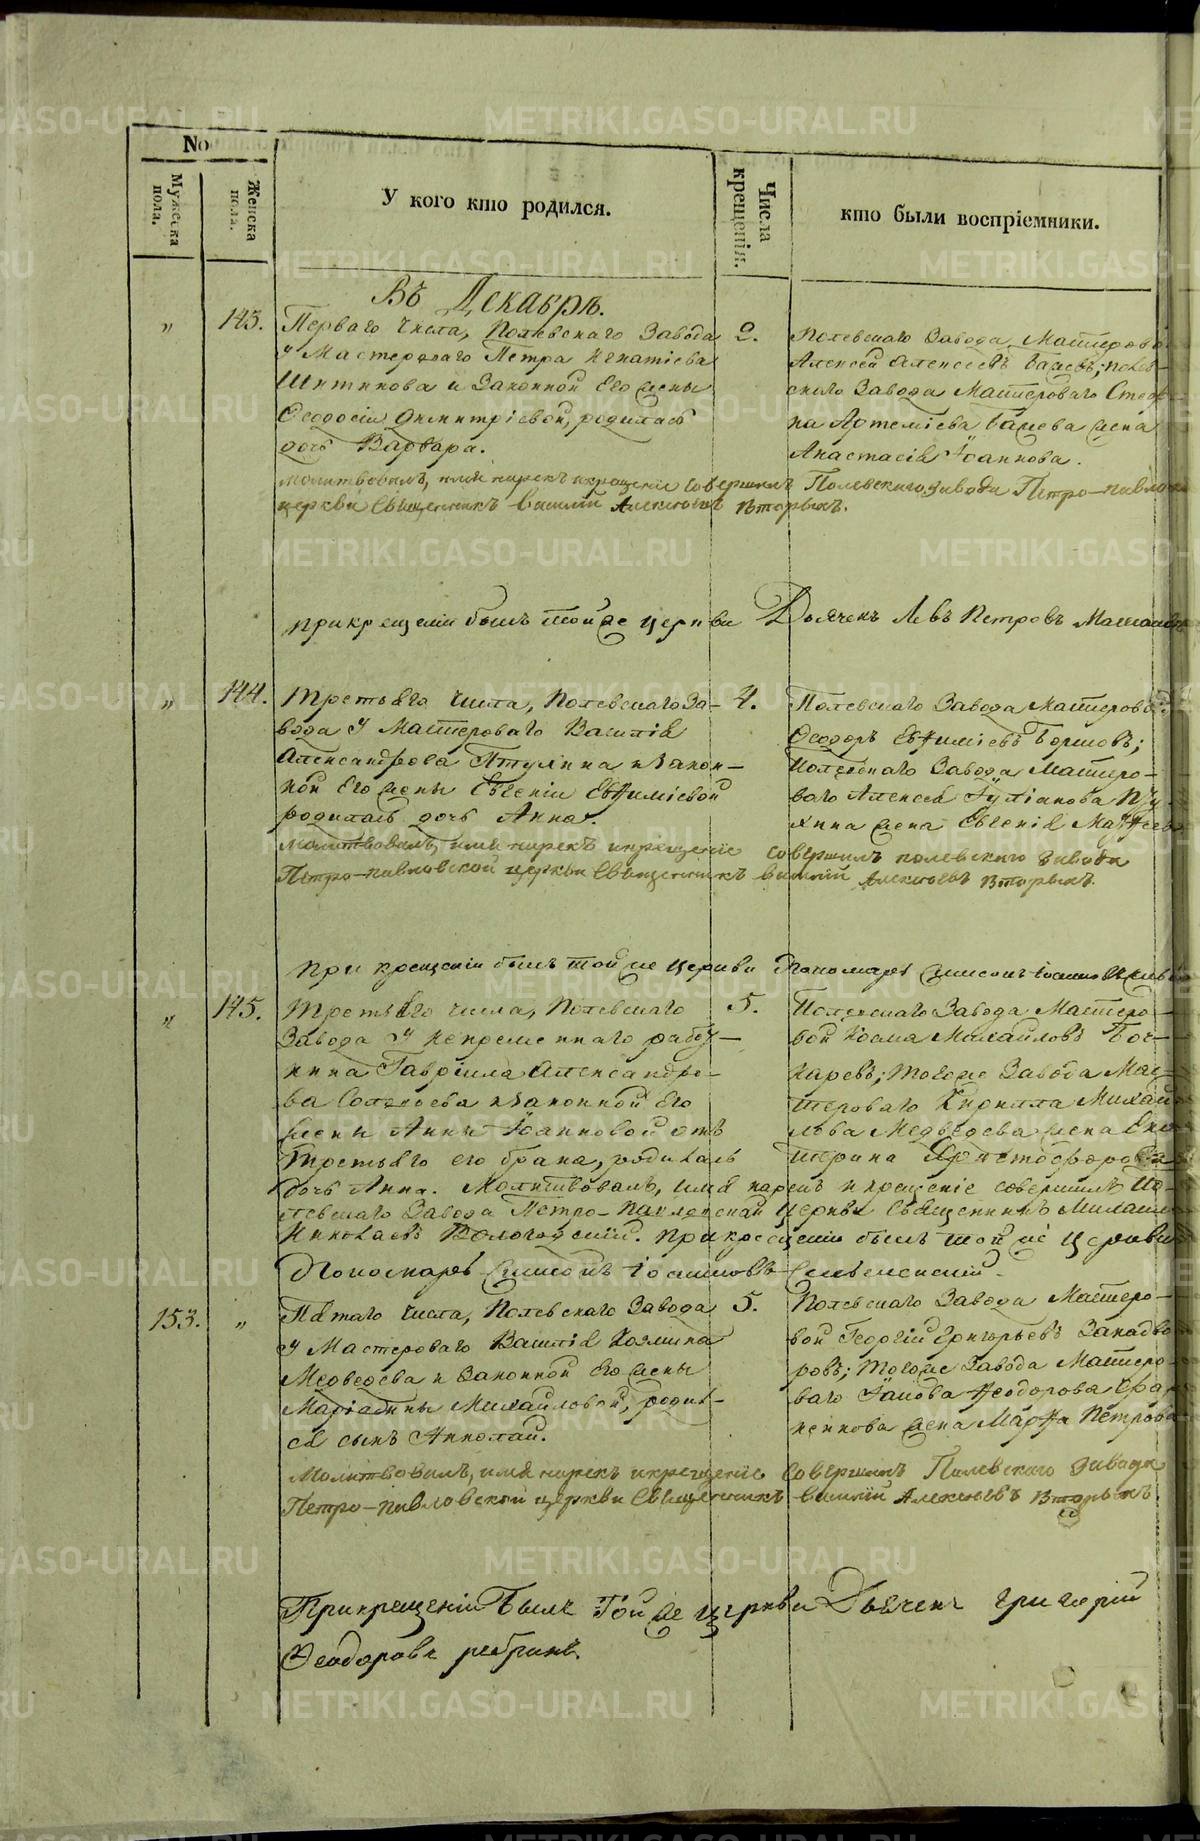 No
Мужеска пола.
Женска пола.
У кого кто родился.
Числа крещенія.
кто были воспріемники.
Въ Декабрѣ.
" 143. Перваго Числа, Полевскаго Завода 2.
у Мастероваго Петра Игнатіева
и Законной Его Жены
Ѳеодосіи Димитріевой, родилась
дочь Варвара.
Полевскаго Завода Мастеровой
Алексей Алексеевъ; Полев-
скаго Завода Мастероваго
на Артеміева жена
Анастасія Іоаннова.
Молитвовалъ, имя нарекъ и крещеніе совершилъ Полевскаго завода Петро-павловской
церкви Священникъ Василій Алексѣевъ Вторыхъ.
при крещеніи былъ той же церкви Дьячекъ Левъ Петровъ
" 144. Третьяго Числа, Полевскаго За- 4.
вода у Мастероваго Василія
Александрова и закон-
ной Его жены Евгеніи Евфиміевой
родилась дочь Анна.
Полевскаго Завода Мастеровой
Ѳеодоръ Евфиміевъ;
Полевскаго Завода Мастеро-
ваго Алексея Іуліанова
жена Евгенія
Молитвовалъ, имя нарекъ и крещеніе совершилъ полевскаго завода
Петро-павловской церкви Священникъ Василій Алексѣевъ Вторыхъ.
при крещеніи былъ той же церкви Пономарь Симеонъ Іоанновъ
" 145. Третьяго числа, Полевскаго 5.
Завода у Непременнаго работ-
ника Гавріила Александро-
ва и законной Его
жены Анны Іоанновой отъ
третьяго его брака, родилась
Полевскаго Завода Мастеро-
вой Косма Михайловъ Боч-
каревъ; тогоже Завода Мас-
тероваго Кирилла Михай-
лова Медведева жена Ека-
терина
дочь Анна. Молитвовалъ, имя нарекъ и крещеніе совершилъ По-
левскаго Завода Петро-Павловской Церкви Священникъ
Николаевъ Вологодскій. при крещеніи былъ той же Церкви
Пономарь Симеонъ Іоанновъ
153. " Пятаго Числа, Полевскаго Завода 5.
у Мастероваго Василія Козмина
Медведева и Законной Его жены
Михайловой, родил-
ся сынъ
Полевскаго Завода Мастеро-
вой Георгій Григорьевъ Западво-
ровъ; тогоже Завода Мастеро-
ваго Іакова Ѳеодорова
жена Марфа Петрова
Молитвовалъ, имя нарекъ и крещеніе совершилъ Полевскаго завода
Петро-павловской церкви Священникъ Василій Алексѣевъ Вторыхъ.
При крещеніи былъ той же церкви Дьячекъ Григорій
Ѳеодоровъ
METRIKI.GASO-URAL.RU